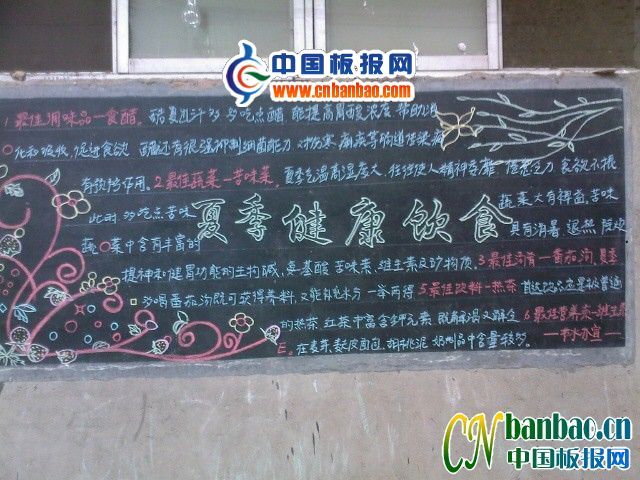 中国板报网
www.cnbanbao.cn
1最佳调味品—食醋。酷夏出汗多 多吃点醋 能提高胃酸浓度 帮助消
化和吸收,促进食欲 醋还有很强抑制细菌能力 对伤寒 痢疾等肠道传染病
有预防作用。2.最佳蔬菜—苦味菜。夏季气温高湿度大 往往使人精神萎靡 倦怠乏力 食欲不振
此时 多吃点苦味 蔬菜大有裨益 苦味
夏季健康饮食
蔬菜中含有丰富的 具有消暑、退热、除
提神和健胃功能的生物碱、氨基酸 苦味素、维生素及矿物质。3最佳汤肴—番茄汤 夏季
多喝番茄汤既可获得养料,又能补充水分 一举两得 5最佳饮料—热茶
的热茶 红茶中富含钾元素 既解渴又解乏 6最佳营养素—维生素
E。在麦芽、麸皮面包、胡桃泥、奶制品中含量较多。
CN banbao.cn
中国板报网